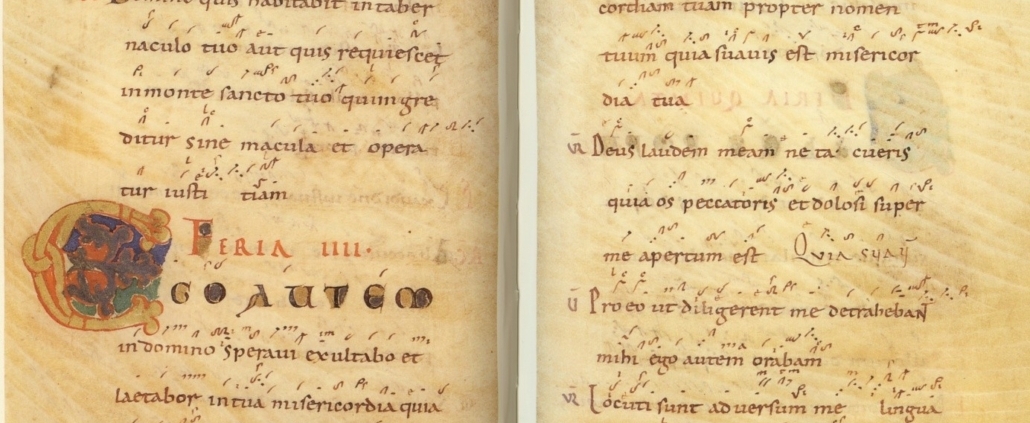 Domine quis habitabit in taber
naculo tuo aut quis requiescet
in monte sancto tuo qui ingre
ditur sine macula et opera
tur iusti tiam
FERIA IIII.
EGO AUTEM
in domino speraui exultabo et
laetabor in tua misericordia quia
cordiam tuam propter nomen
tuum quia suauis est misericor
dia tua
VR Deus laudem meam ne ta cueris
quia os peccatoris et dolosi super
me apertum est Quia suaū
V Pro eo ut diligerent me detrahebant
mihi ego autem orabam
VR Locuti sunt aduersum me lingua